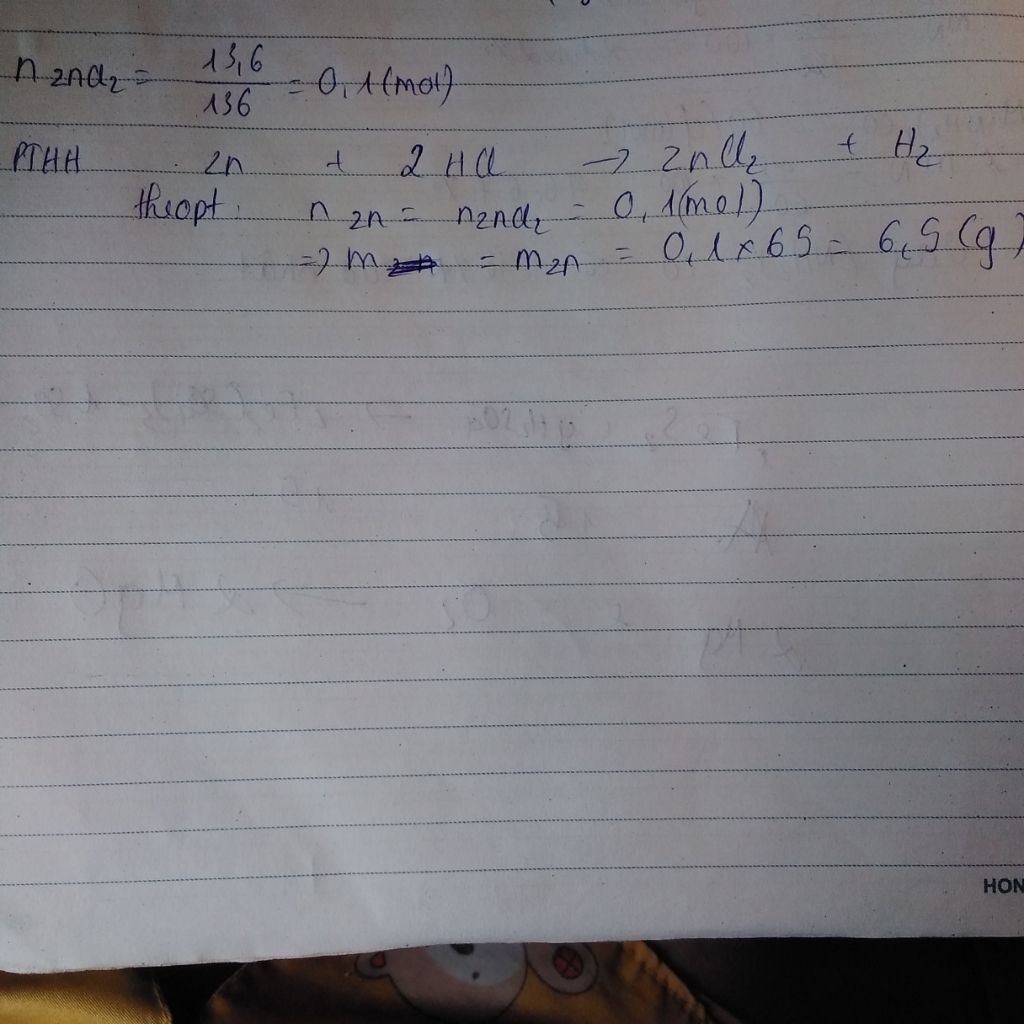 n ZnCl2 = 13,6 / 136 = 0,1 (mol)
PTHH Zn + 2 HCl → ZnCl2 + H2
theo pt : n Zn = nZnCl2 = 0,1 (mol)
=> m = m Zn = 0,1 × 65 = 6,5 (g)
HON